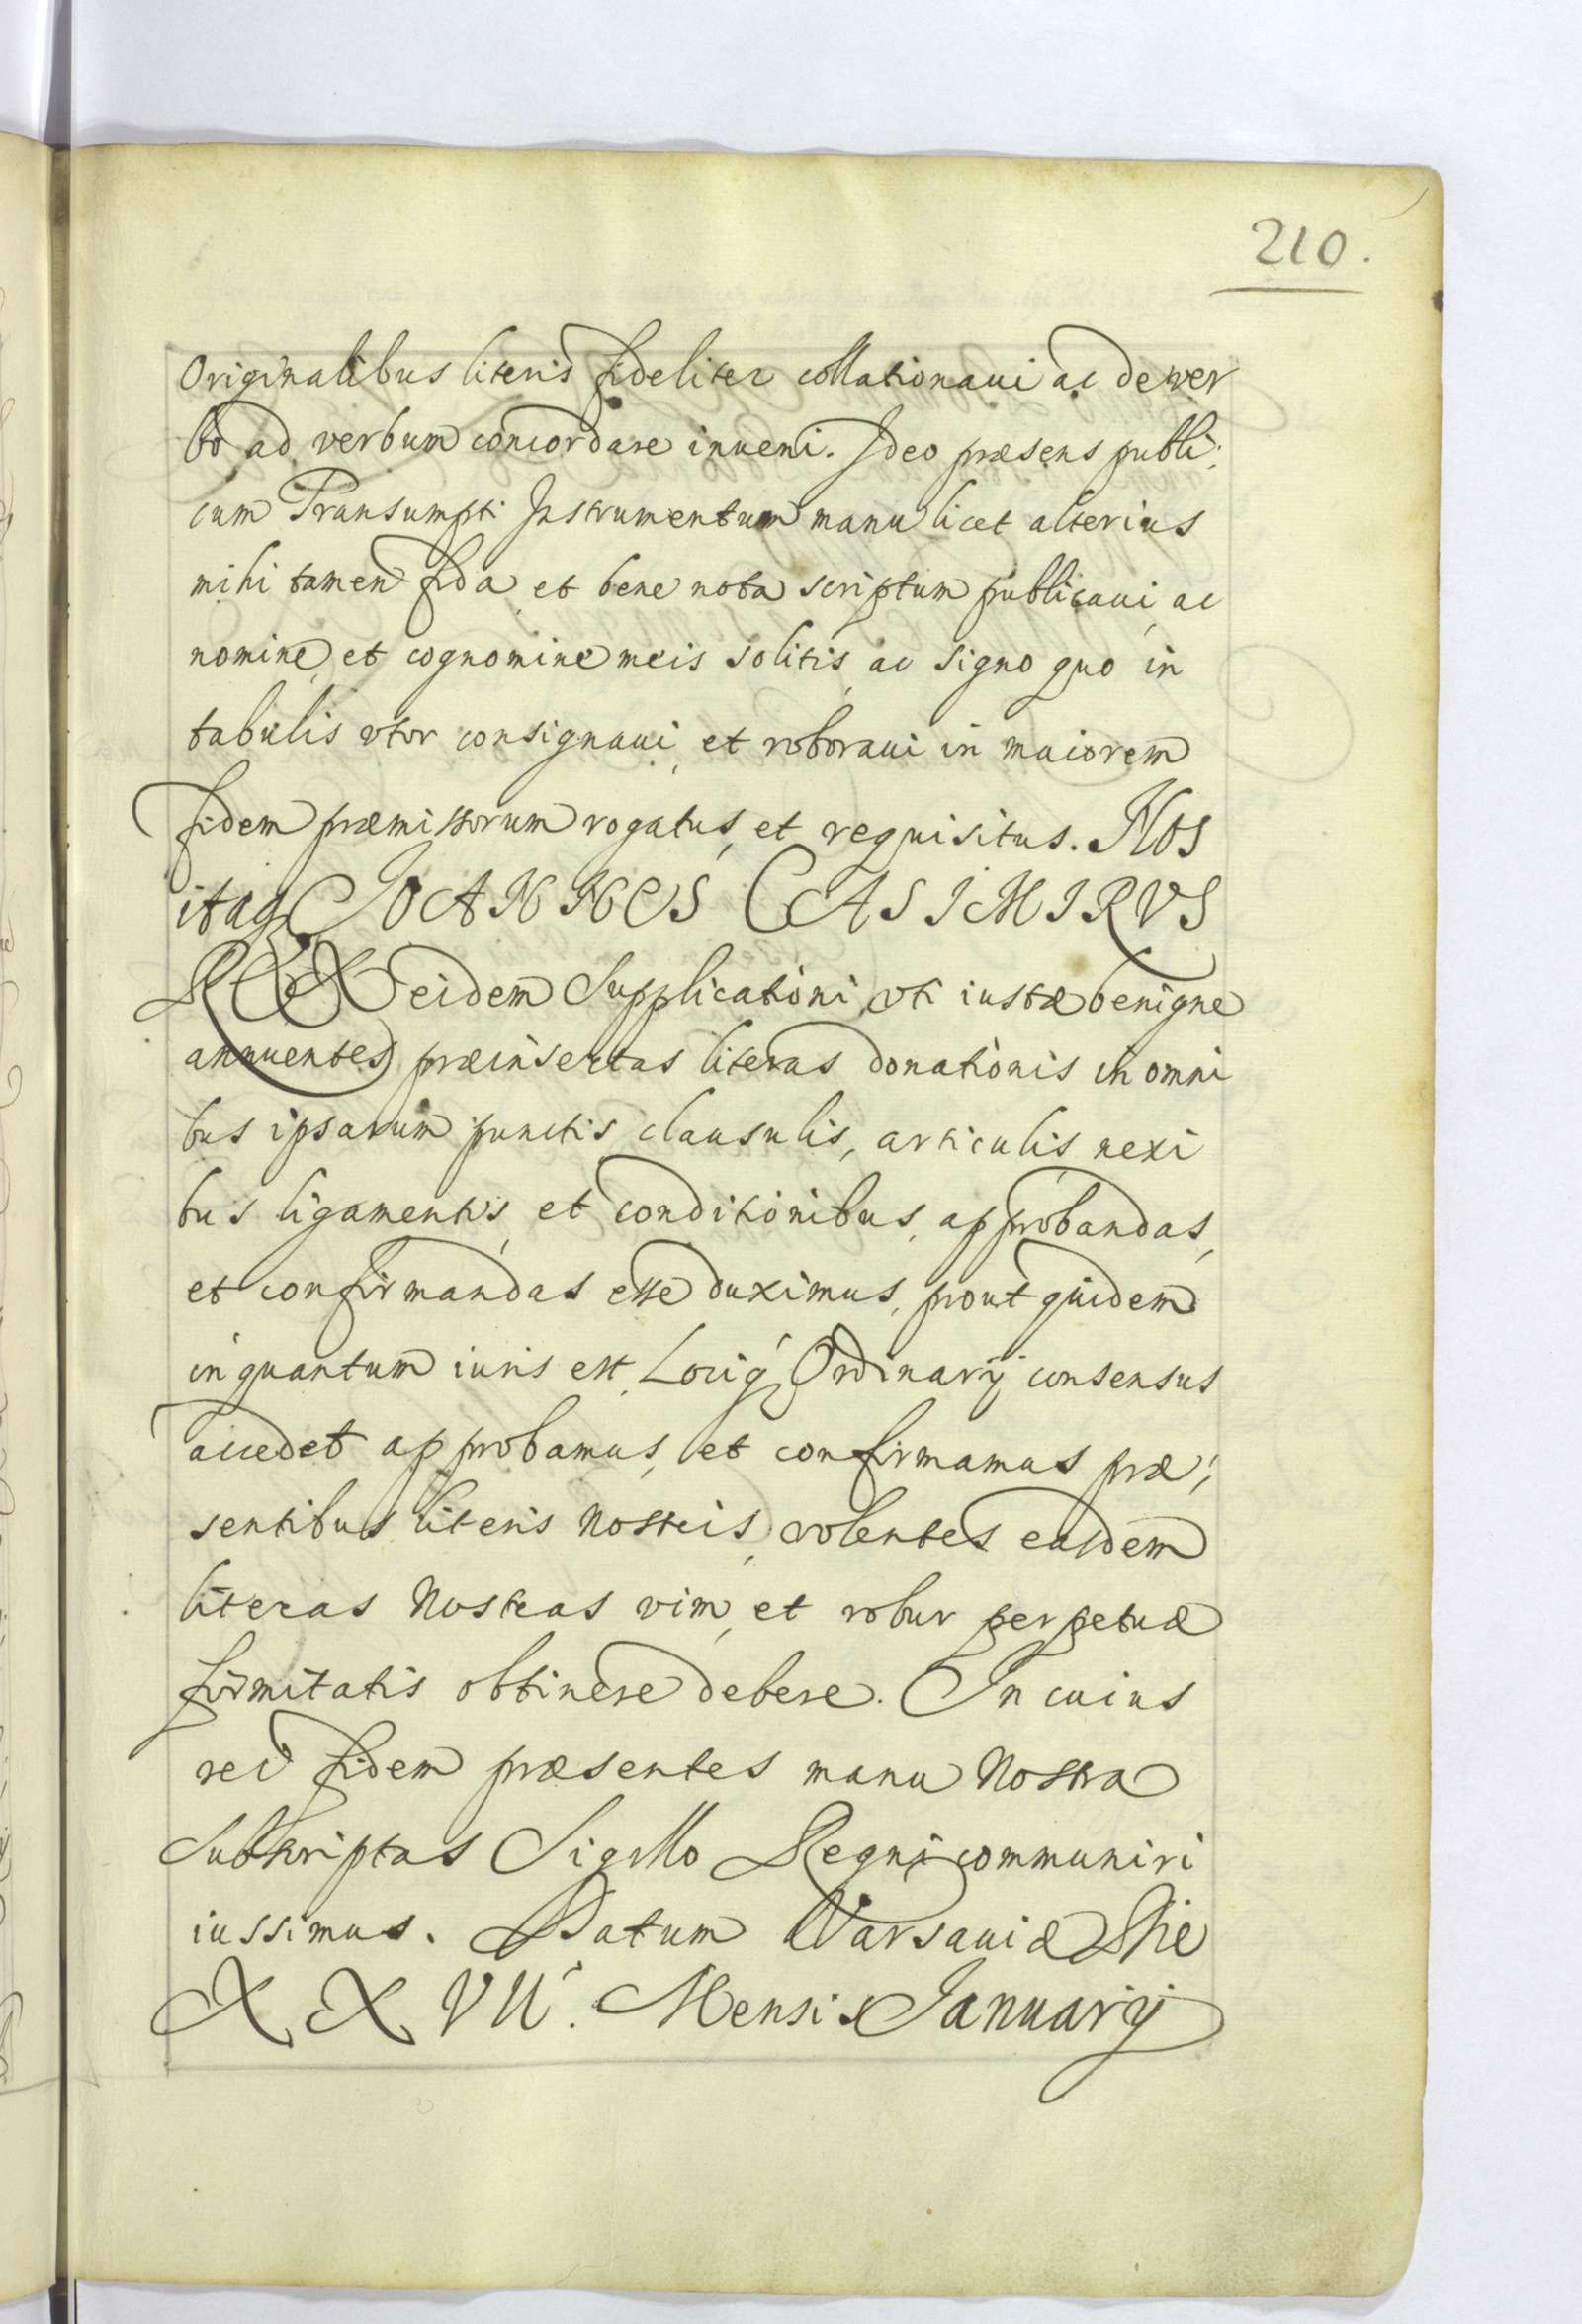 210.
Originalibus literis fideliter collationaui ac de ver
bo ad verbum concordare inueni. Ideo præsens publi,
cum Transumpti Instrumentum manu licet alterius
mihi tamen fida et bene nota scriptum publicaui, ac
nomine, et cognomine meis solitis, ac signo quo in
tabulis vtor consignaui, et roboraui in maiorem
fidem præmissorum rogatus, et requisitus. Nos
itaq JOANNES CASIMIRVS
REX eidem Supplicationi, vti iustæ benigne
annuentes præinsertas literas donationis in omni
bus ipsarum punctis clausulis, articulis nexi
bus ligamentis, et conditionibus, approbandas,
et confirmandas esse duximus, prout quidem
inquantum iuris est, Lociq Ordinarij consensus
accedet approbamus, et confirmamus præ,
sentibus literis Nostris, volentes easdem
literas Nostras vim, et robur perpetuæ
firmitatis obtinere debere. In cuius
rei fidem præsentes manu Nostra
Subscriptas Sigillo Regni communiri
iussimus. Datum Varsauiæ Die
XXVII. Mensis Januarij